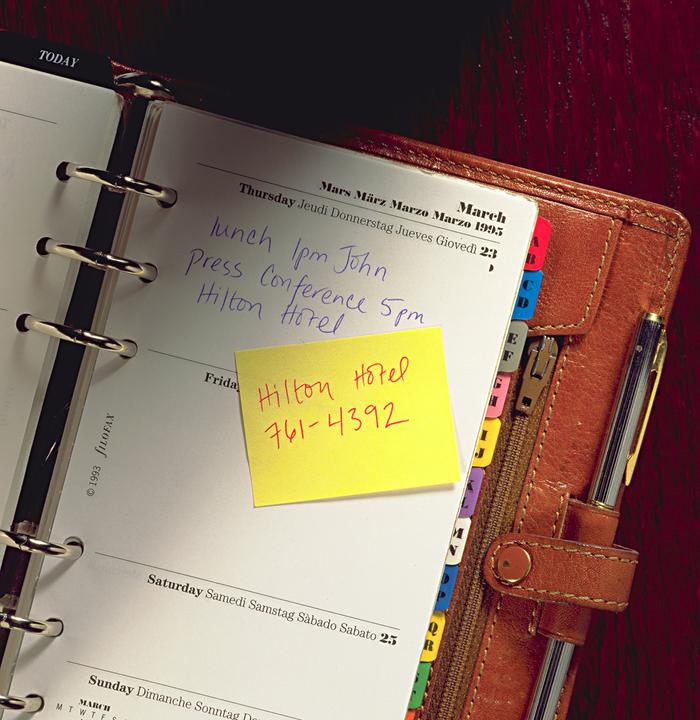 TODAY
March
Mars März Marzo Marzo 1995
Thursday Jeudi Donnerstag Jueves Giovedì 23
lunch 1pm John
Press Conference 5pm
Hilton Hotel
Hilton Hotel
761-4392
© 1993 filofax
Saturday Samedi Samstag Sàbado Sabato 25
Sunday Dimanche Sonntag
MARCH
M T W T F S
A
B
C
D
E
F
G
H
I
J
K
L
M
N
O
P
Q
R